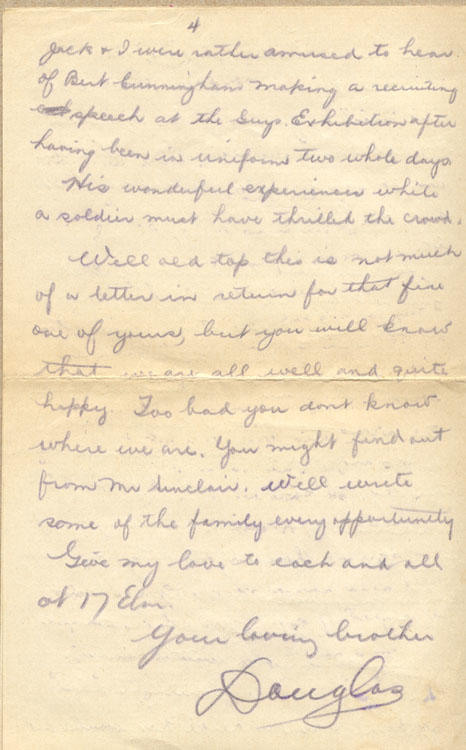 4
Jack & I were rather amused to hear
of Bert Cunningham making a recruiting
speech at the Guys. Exhibition after
having been in uniform two whole days.
His wonderful experiences while
a soldier must have thrilled the crowd.
Well old top this is not much
of a letter in return for that fine
one of yours, but you will know
that we are all well and quite
happy. Too bad you dont know
where we are. You might find out
from Mr Sinclair. Will write
some of the family every opportunity
Give my love to each and all
at 17 Elm.
Your loving brother
Douglas